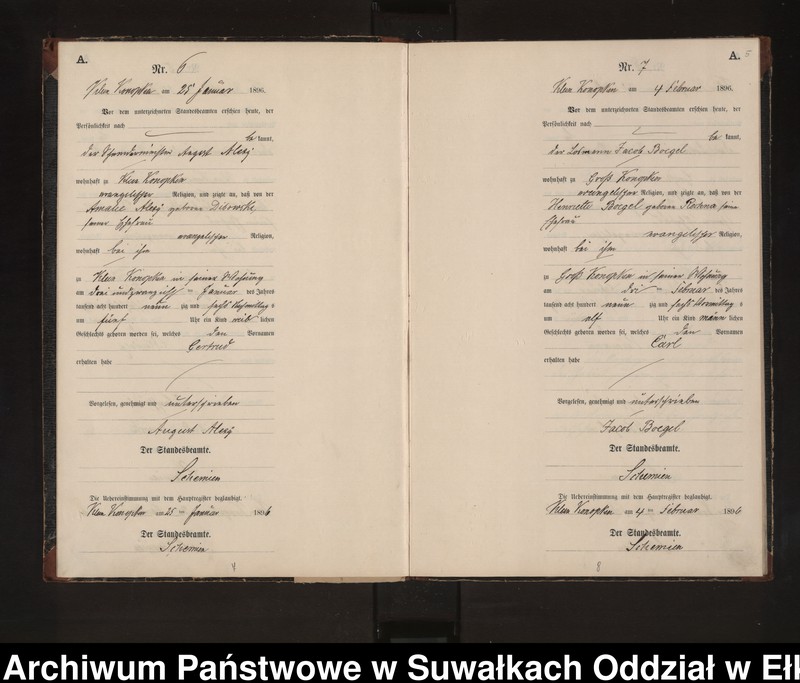 A.
Nr. 6
Klein Konopken am 25 Januar 1896.
Vor dem unterzeichneten Standesbeamten erschien heute, der
Persönlichkeit nach
be kannt,
der August Alexy
wohnhaft zu Klein Konopken
evangelischer Religion, und zeigte an, daß von der
Amalie Alexy geborene
seiner Ehefrau
evangelischer Religion,
wohnhaft bei ihm
zu Klein Konopken in seiner Wohnung
am drei und zwanzigsten Januar des Jahres
tausend acht hundert neun zig und sechs Nachmittag s
um fünf Uhr ein Kind weib lichen
Geschlechts geboren worden sei, welches den Vornamen
Gertrud
erhalten habe
Vorgelesen, genehmigt und unterschrieben
August Alexy
Der Standesbeamte.
Schemien
Die Uebereinstimmung mit dem Hauptregister beglaubigt.
Klein Konopken am 25 ten Januar 1896
Der Standesbeamte.
Schemien
A.
5
Nr. 7
Klein Konopken am 4 Februar 1896.
Vor dem unterzeichneten Standesbeamten erschien heute, der
Persönlichkeit nach
be kannt,
der Losmann Jacob Boegel
wohnhaft zu Groß Konopken
evangelischer Religion, und zeigte an, daß von der
Henriette Boegel geborene seine
Ehefrau
evangelischer Religion,
wohnhaft bei ihm
zu Groß Konopken in seiner Wohnung
am drei ten Februar des Jahres
tausend acht hundert neun zig und sechs Vormittag s
um elf Uhr ein Kind männ lichen
Geschlechts geboren worden sei, welches den Vornamen
Carl
erhalten habe
Vorgelesen, genehmigt und unterschrieben
Jacob Boegel
Der Standesbeamte.
Schemien
Die Uebereinstimmung mit dem Hauptregister beglaubigt.
Klein Konopken am 4 ten Februar 1896
Der Standesbeamte.
Schemien
8
Archiwum Państwowe w Suwałkach Oddział w Ełk